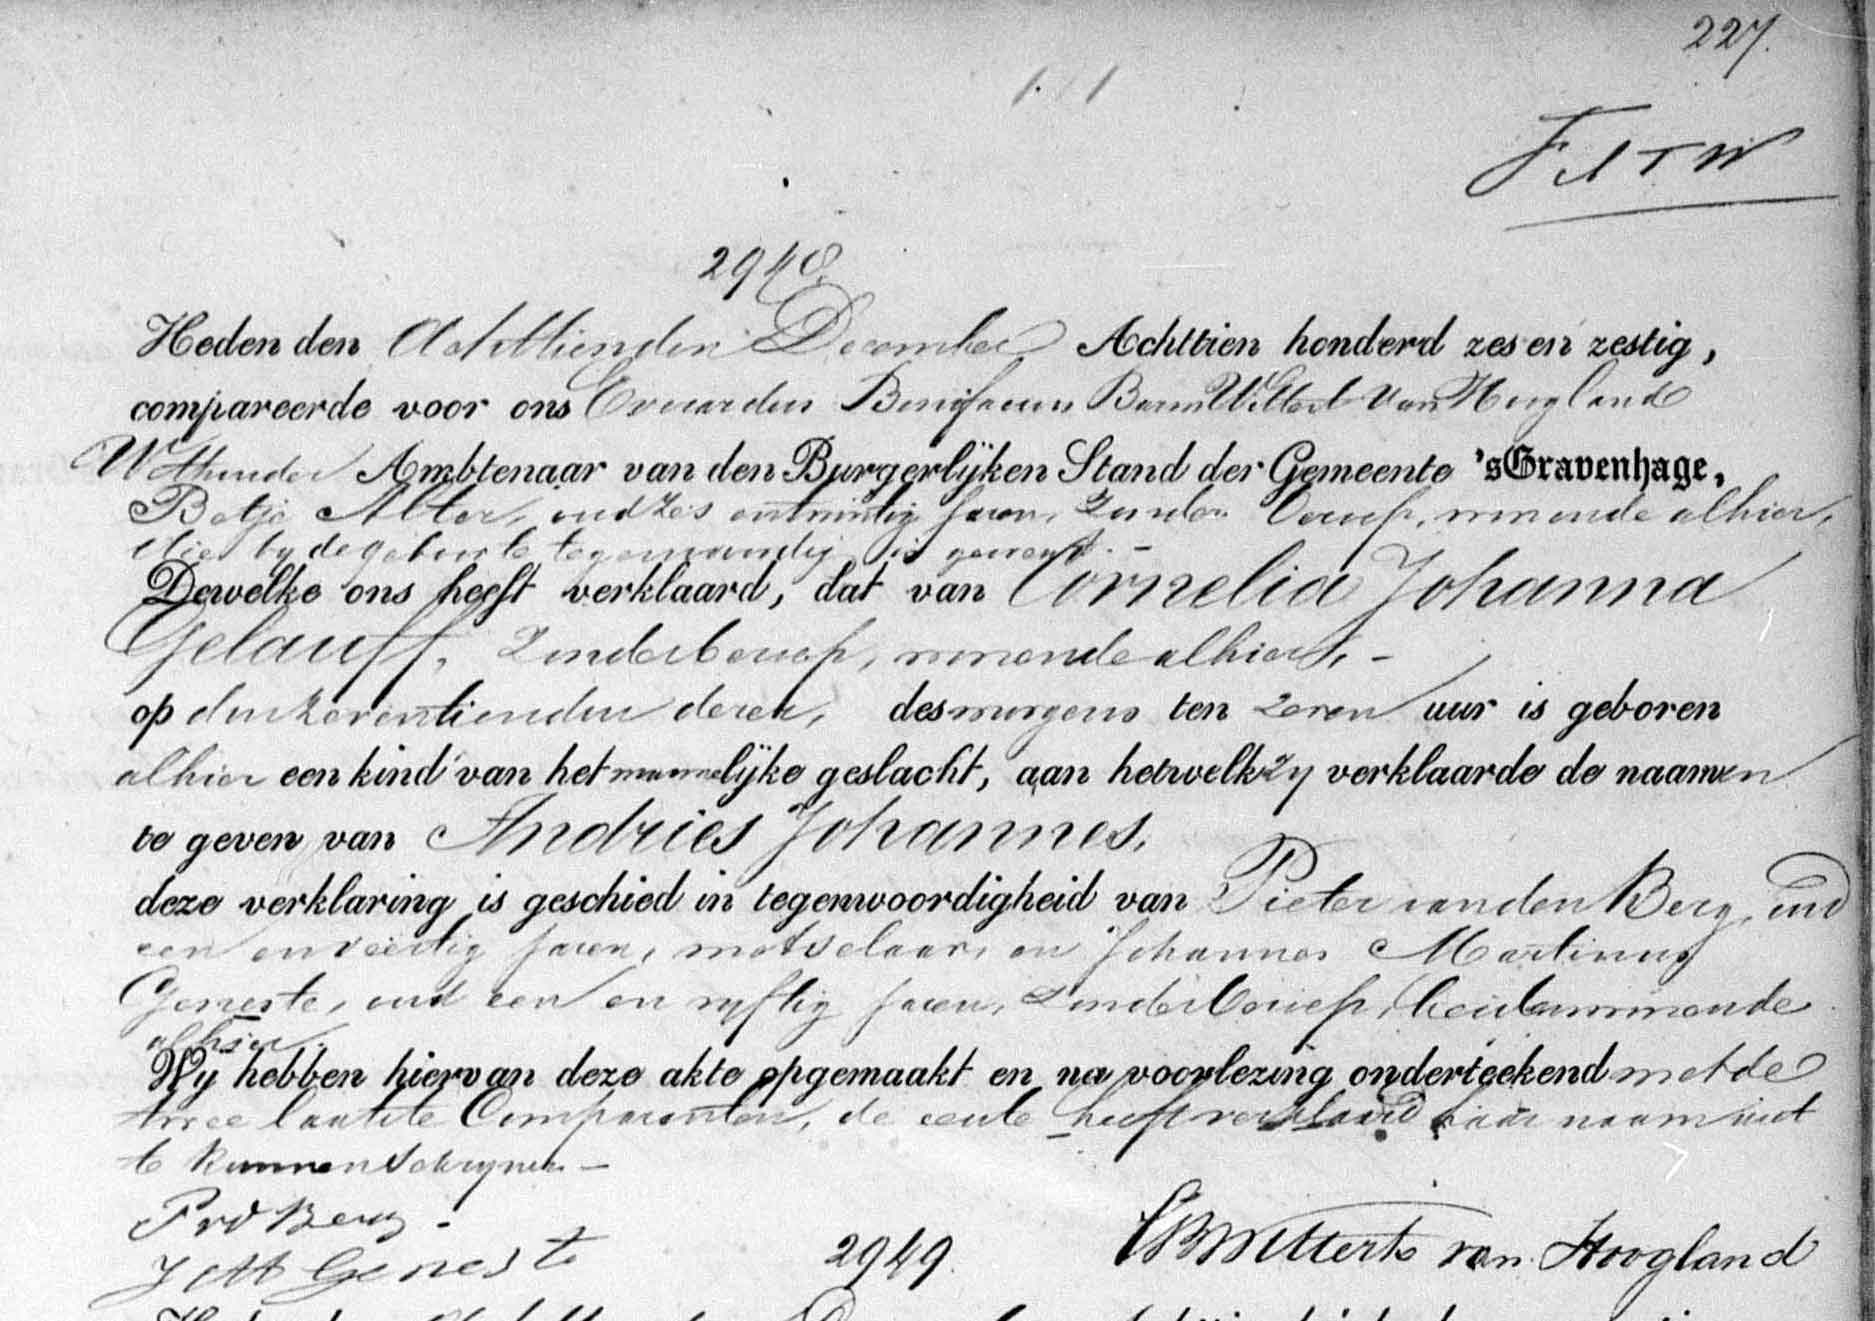 227.
2948.
Heden den Achttienden December Achttien honderd zes en zestig,
compareerde voor ons Everardus Bonifacius Baron Wittert Van Hoogland
Wethouder Ambtenaar van den Burgerlijken Stand der Gemeente 'sGravenhage,
Betje Alter, oud zes en twintig jaren, zonder beroep, wonende alhier,
die by de geboorte tegenwoordig is geweest. –
Dewelke ons heeft verklaard, dat van Cornelia Johanna
Gelauff, zonder beroep, wonende alhier, –
op den zeventienden dezer, des morgens ten zeven uur is geboren
alhier een kind van het mannelijke geslacht, aan hetwelk zy verklaarde de naamen
te geven van Andries Johannes.
deze verklaring is geschied in tegenwoordigheid van Pieter van den Berg, oud
een en veertig jaren, metselaar, en Johannes Martinus
Geneste, oud een en vyftig jaren, zonder beroep, beiden wonende
alhier.
Wij hebben hiervan deze akte opgemaakt en na voorlezing onderteekend met de
twee laatste Comparanten, de eerste heeft verklaard haar naam niet
te kunnen schryven –
P vd Berg.
J M Geneste
EBWittert van Hoogland
2949.